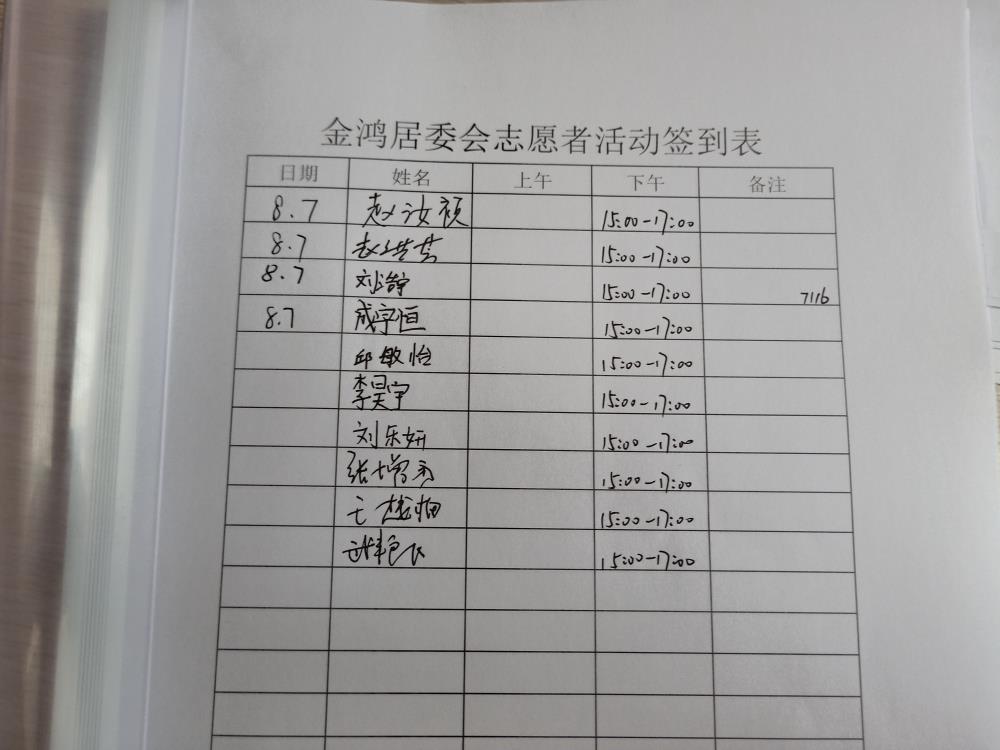 金鸿居委会志愿者活动签到表
日期 姓名 上午 下午 备注
8.7 赵汝颖 15:00-17:00
8.7 赵 15:00-17:00
8.7 刘 15:00-17:00 7116
8.7 成宇恒 15:00-17:00
邱敏怡 15:00-17:00
李昊宇 15:00-17:00
刘乐妍 15:00-17:00
张增秀 15:00-17:00
15:00-17:00
15:00-17:00